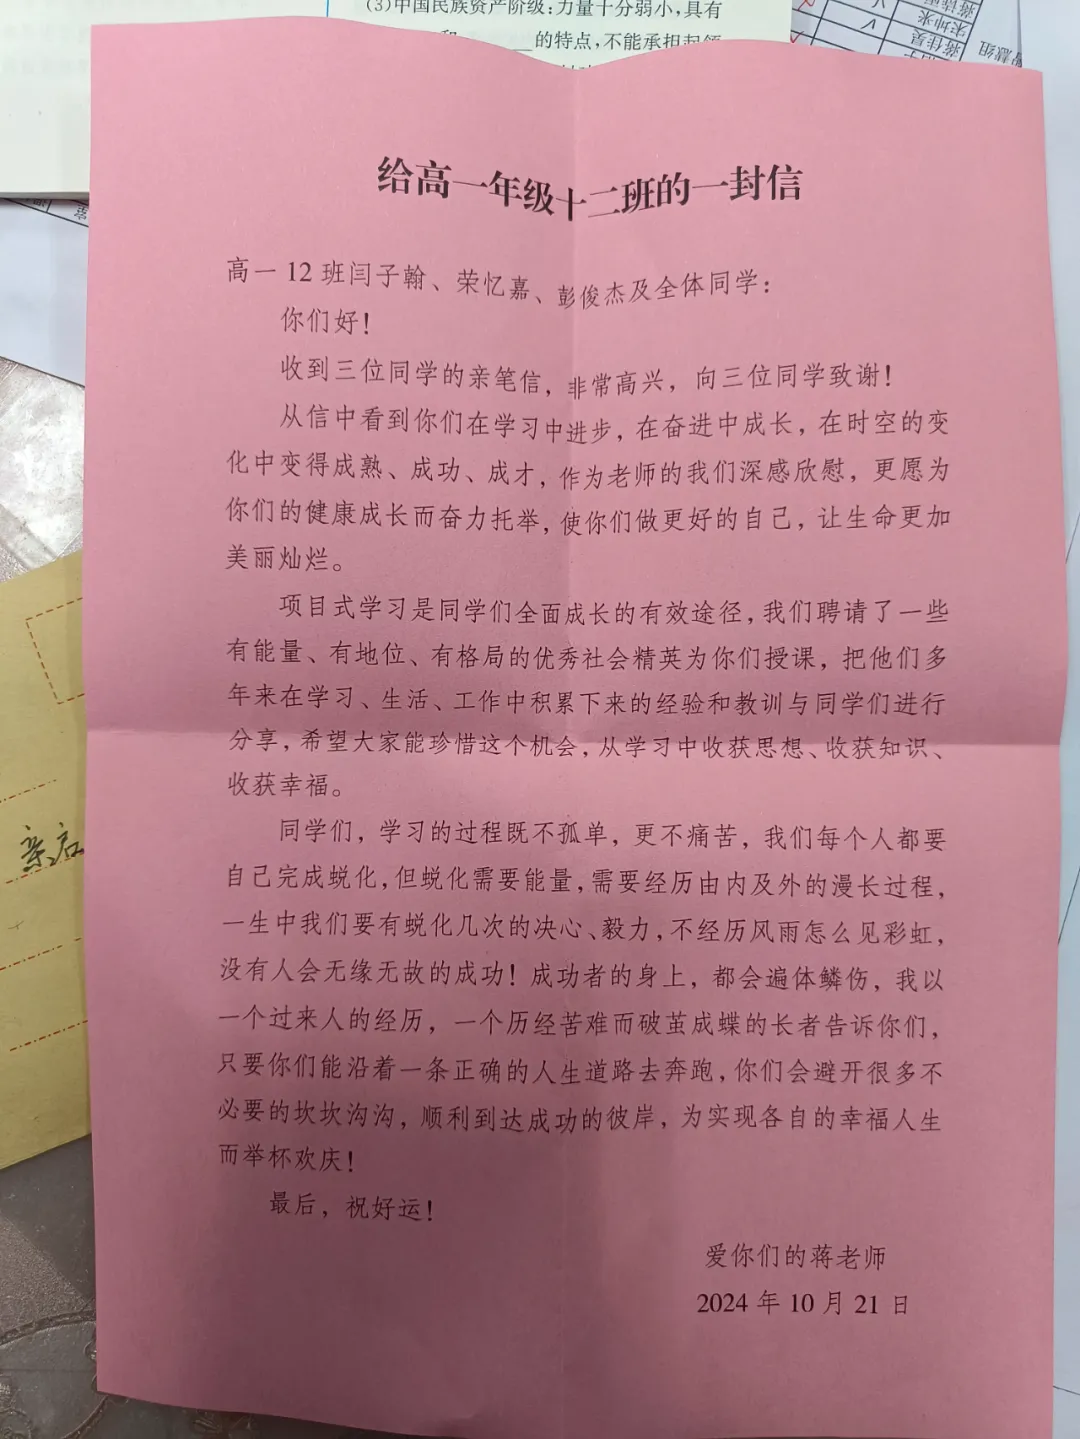 (3)中国民族资产阶级:力量十分弱小,具有
的特点,不能承担起领
蒋佳昊
智慧组
给高一年级十二班的一封信
高一12班闫子翰、荣忆嘉、彭俊杰及全体同学：
你们好！
收到三位同学的亲笔信，非常高兴，向三位同学致谢！
从信中看到你们在学习中进步，在奋进中成长，在时空的变
化中变得成熟、成功、成才，作为老师的我们深感欣慰，更愿为
你们的健康成长而奋力托举，使你们做更好的自己，让生命更加
美丽灿烂。
项目式学习是同学们全面成长的有效途径，我们聘请了一些
有能量、有地位、有格局的优秀社会精英为你们授课，把他们多
年来在学习、生活、工作中积累下来的经验和教训与同学们进行
分享，希望大家能珍惜这个机会，从学习中收获思想、收获知识、
收获幸福。
同学们，学习的过程既不孤单，更不痛苦，我们每个人都要
自己完成蜕化，但蜕化需要能量，需要经历由内及外的漫长过程，
一生中我们要有蜕化几次的决心、毅力，不经历风雨怎么见彩虹，
没有人会无缘无故的成功！成功者的身上，都会遍体鳞伤，我以
一个过来人的经历，一个历经苦难而破茧成蝶的长者告诉你们，
只要你们能沿着一条正确的人生道路去奔跑，你们会避开很多不
必要的坎坎沟沟，顺利到达成功的彼岸，为实现各自的幸福人生
而举杯欢庆！
最后，祝好运！
爱你们的蒋老师
2024年10月21日
亲启